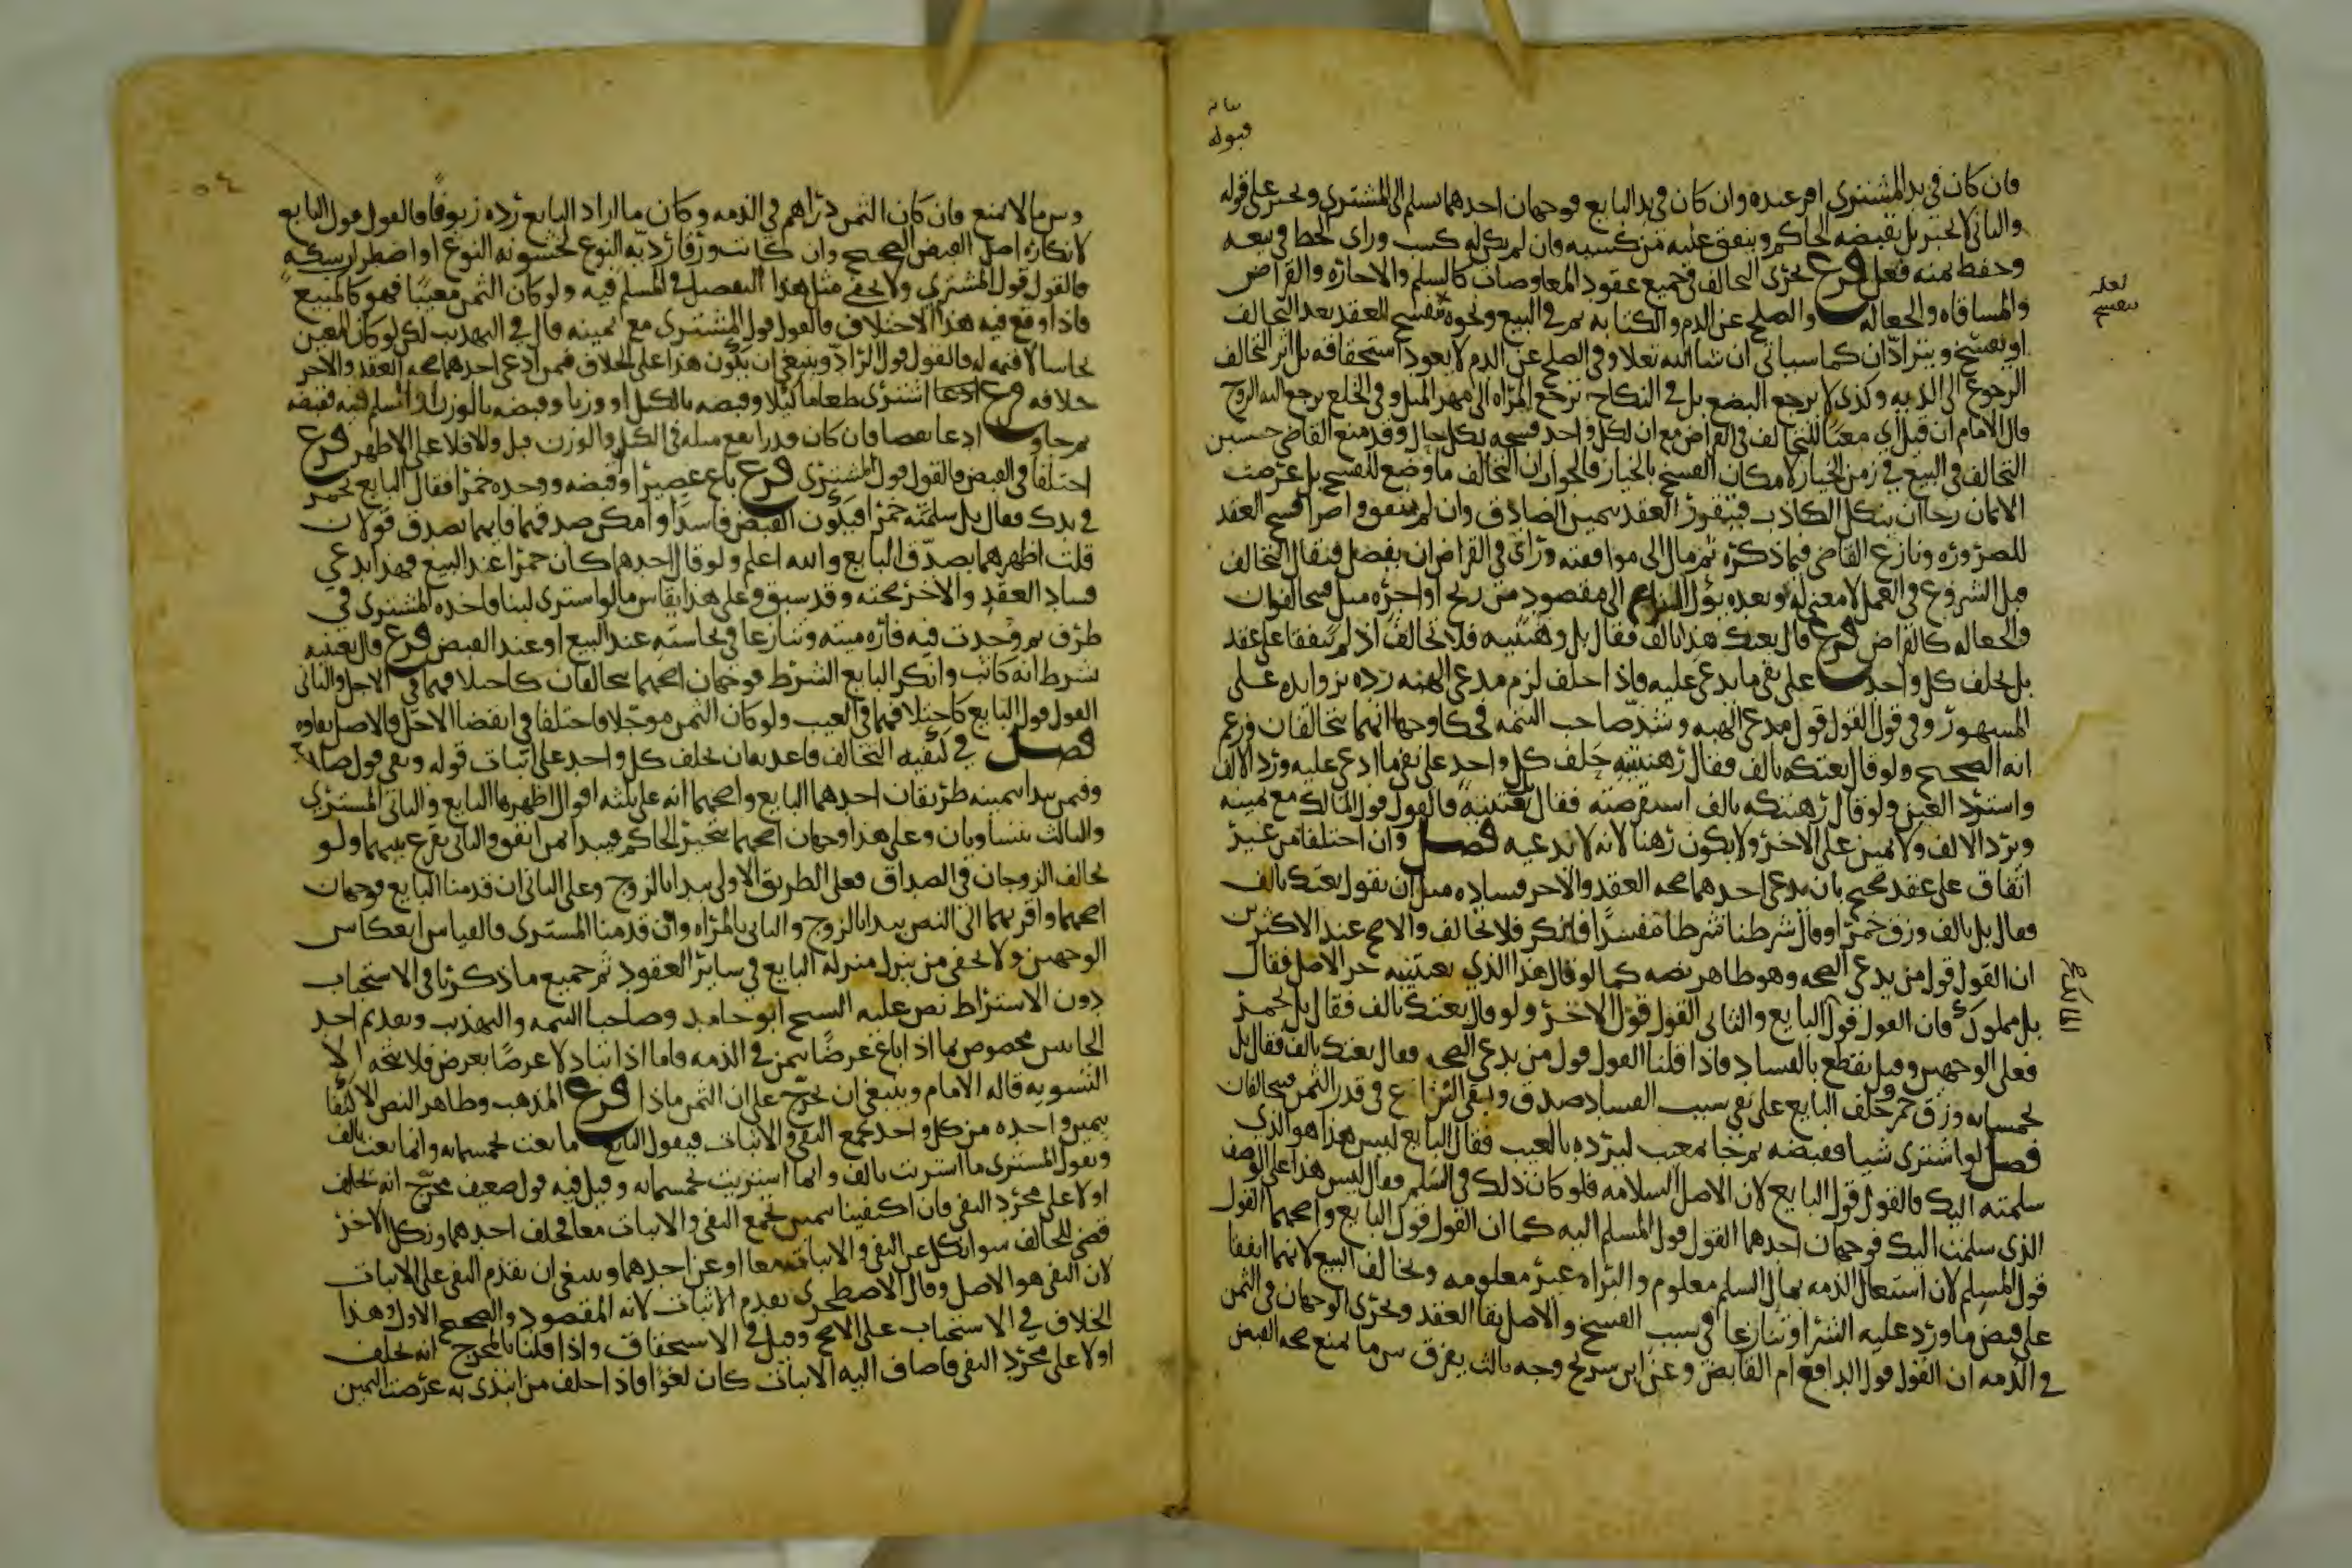 ىىانه
قبوله
فان كان في يد المشتري اقر عنده وان كان في يد البايع فوجهان احدهما يسلم الى المشتري ويجبر على قوله
والثاني لا يجبر بل يقبضه الحاكم وينفق عليه من كسبه وان لم يكن له كسب وراى الحظ في بيعه
وحفظ ثمنه فعل فرع يجرى التحالف في جميع عقود المعاوضات كالسلم والاجازه والقراض
والمساقاه والجعاله والصلح عن الدم والكتابه ثم في البيع ونحوه تفسخ العقد بعد التحالف
او يفسخ ويترادّان كما سياتي ان شا الله تعلا وفي الصلح عن الدم لا يعود استحقاقه بل اثر التحالف
الرجوع الى الديه وكذى لا يرجع البضع بل في النكاح ترجع المراه الى مهر المثل وفي الخلع يرجع اليه الزوج
قال الامام ان قيل اي معنًا للتحالف في القراض مع ان لكل واحد فسخه بكل حال وقد منع القاضي حسين
التحالف في البيع في زمن الخيار لامكان الفسخ بالخيار فالجواب ان التحالف ما وضع للفسخ بل عرضت
الايمان رجا ان ينكل الكاذب فيتقرر العقد بيمين الصادق وان لم يتفق واصرا فسخ العقد
للضروره ونازع القاضي فيما ذكره ثم مال الى موافقته وراى في القراض ان يفصل فيقال التحالف
قبل الشروع في العمل لا معنى له وبعده يؤل النزاع الى مقصود من ربح او اجره مثل فيتحالفان
والجعاله كالقراض فرع قال بعتك هذا بالف فقال بل وهبتنيه فلا تحالف اذ لم يتفقا على عقد
بل يحلف كل واحد على نفي ما يدعي عليه فاذا حلف لزم مدعى الهبه رده بزوايده على
المشهور وفي قول القول قول مدعى الهبه وشذّ صاحب التتمه فحكا وجها انهما يتحالفان وزعم
انه الصحيح ولو قال بعتكه بالف فقال رهنتنيه حلف كل واحد على نفي ما ادعى عليه ورد الالف
واسترد العين ولو قال رهنتكه بالف استقرضته فقال بعتنيه فالقول قول المالك مع يمينه
ويرد الالف ولا يمين على الاخر ولا يكون رهنا لانه لا يدعيه فصل وان اختلفا من غير
اتفاق على عقد صحيح بان يدعى احدهما صحه العقد والاخر فساده مثل ان يقول بعتك بالف
فقال بل بالف وزق خمر او قال شرطنا شرطا مفسدًا فانكر فلا تحالف والاصح عند الاكثرين
ان القول قول من يدعى الصحه وهو ظاهر نصه كما لو قال هذا الذي بعتنيه حر الاصل فقال
بل مملوك فان القول قول البايع والثاني القول قول الاخر ولو قال بعتك بالف فقال بل بخمر
فعلى الوجهين وقيل يقطع بالفساد فاذا قلنا القول قول من يدعى الصحه فقال بعتك بالف فقال بل
بخمسمايه وزق خمر حلف البايع على نفي سبب الفساد صدق وبقى النزاع في قدر الثمن فيتحالفان
فصل لو اشترى شيا فقبضه ثم جا بمعيب ليرده بالعيب فقال البايع ليس هذا هو الذي
سلمته اليك فالقول قول البايع لان الاصل السلامه فلو كان ذلك في السلم فقال ليس هذا على الوصف
الذي سلمت اليك فوجهان احدهما القول قول المسلم اليه كما ان القول قول البايع واصحهما القول
قول المسلم لان اشتغال الذمه بمال السلم معلوم والبراه غير معلومه ويخالف البيع لانهما اتفقا
على قبض ما ورد عليه الشرا وتنازعا في سبب الفسخ والاصل بقا العقد ويجرى الوجهان في الثمن
في الذمه ان القول قول الدافع ام القابض وعن ابن سريج وجه ثالث يفرق بين ما يمنع صحه القبض
لعله
ىىفسخ
وبين ما لا يمنع فان كان الثمن دراهم في الذمه وكان ما اراد البايع رده زيوفًا فالقول قول البايع
لانكاره اصل القبض الصحيح وان كانت ورقا ردية النوع لخشونه النوع او اضطراب سكه
فالقول قول المشتري ولا يخفى مثل هذا التفصيل في المسلم فيه ولو كان الثمن معينًا فهو كالمبيع
فاذا وقع فيه هذا الاختلاف فالقول قول المشترى مع يمينه قال في التهذيب لكن لو كان المعين
نحاسا لا قيمه له فالقول قول الرادّ وينبغي ان يكون هذا على الخلاف فيمن ادعى احدهما صحه العقد والاخر
خلافه فرع اذا اشترى طعاما كيلا وقبضه بالكيل او وزنا وقبضه بالوزن او اسلم فيه فقبضه
ثم جا وادعا نقصا فان كان قدرا يقع مثله في الكيل والوزن قبل والا فلا على الاظهر فرع
اختلفا في القبض فالقول قول المشترى فرع باع عصيرا واقبضه ووجده خمرا فقال البايع تخمر
في يدك وقال بل سلمته خمرا فيكون القبض فاسدا وامكن صدقهما فايهما يصدق قولان
قلت اظهرهما يصدّق البايع والله اعلم ولو قال احدهما كان خمرا عند البيع فهذا يدعى
فساد العقد والاخر صحته وقد سبق وعلى هذا يقاس ما لو اشترى لبنا فاخذه المشترى في
ظرف ثم وجدت فيه فاره ميته وتنازعا في نجاسته عند البيع او عند القبض فرع قال بعتنيه
بشرط انه كاتب وانكر البايع الشرط فوجهان اصحهما يتحالفان كاختلافهما في الاجل والثاني
القول قول البايع كاختلافهما في العيب ولو كان الثمن موجلا فاختلفا في انقضا الاجل فالاصل بقاوه
فصل في كيفيه التحالف قاعدته ان يحلف كل واحد على اثبات قوله ونفي قول صاحبه
وفيمن يبدا بيمينه طريقان احدهما البايع واصحهما انه على ثلثه اقوال اظهرها البايع والثاني المشتري
والثالث يتساويان وعلى هذا وجهان اصحهما يتخير الحاكم فيبدا بمن اتفق والثاني يقرع بينهما ولو
تحالف الزوجان في الصداق فعلى الطريق الاولى يبدا بالزوج وعلى الثاني ان قدمنا البايع فوجهان
اصحهما واقربهما الى النص يبدا بالزوج والثاني بالمراه وان قدمنا المشترى فالقياس انعكاس
الوجهين ولا يخفى من ينزل منزله البايع في ساير العقود ثم جميع ما ذكرنا في الاستحباب
دون الاشتراط نص عليه الشيخ ابو حامد وصاحبا التتمه والتهذيب وتقديم احد
الجانبين مخصوص بما اذا باع عرضًا بثمن في الذمه فاما اذا تبادلا عرضًا بعرض فلا يتجه الا
التسويه قاله الامام وينبغي ان يخرّج على ان الثمن ماذا فرع المذهب وظاهر النص الاكتفا
بيمين واحده من كل واحد يجمع النفي والاثبات فيقول البايع ما بعت بخمسمايه وانما بعت بالف
ويقول المشترى ما اشتريت بالف وانما اشتريت بخمسمايه وقيل فيه قول ضعيف مخرّج انه يحلف
اولا على مجرد النفي فان اكتفينا بيمين تجمع النفي والاثبات معا فحلف احدهما ونكل الاخر
قضى للحالف سوا نكل عن النفي والاثبات معا او عن احدهما وينبغي ان يقدم النفي على الاثبات
لان النفي هو الاصل وقال الاصطخرى يقدم الاثبات لانه المقصود والصحيح الاول وهذا
الخلاف في الاستحباب على الاصح وقيل في الاستحقاق واذا قلنا بالمخرج انه يحلف
اولا على مجرد النفي فاضاف اليه الاثبات كان لغوا فاذا حلف من ابتدى به عرضت اليمين